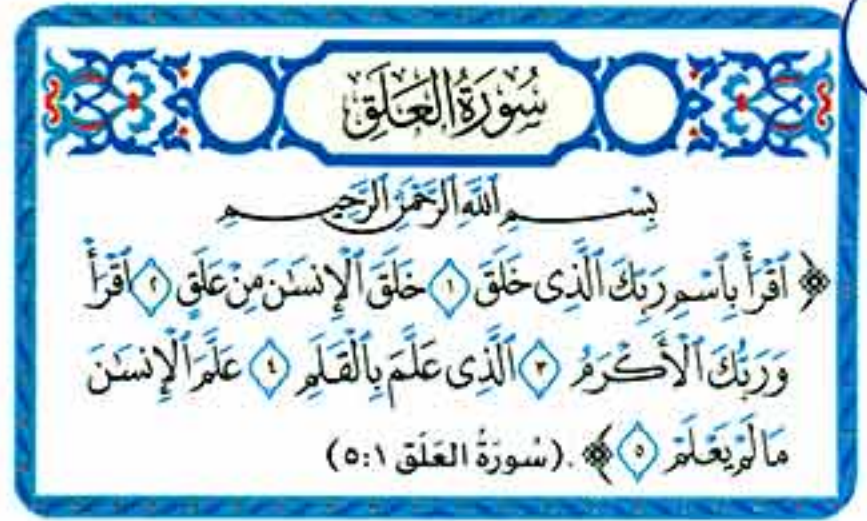 سُورَةُ العَلَقِ
بِسْمِ ٱللَّهِ ٱلرَّحْمَٰنِ ٱلرَّحِيمِ
﴿ ٱقْرَأْ بِٱسْمِ رَبِّكَ ٱلَّذِى خَلَقَ ١ خَلَقَ ٱلْإِنسَٰنَ مِنْ عَلَقٍ ٢ ٱقْرَأْ
وَرَبُّكَ ٱلْأَكْرَمُ ٣ ٱلَّذِى عَلَّمَ بِٱلْقَلَمِ ٤ عَلَّمَ ٱلْإِنسَٰنَ
مَا لَمْ يَعْلَمْ ٥ ﴾. (سُورَةُ العَلَق ٥:١)